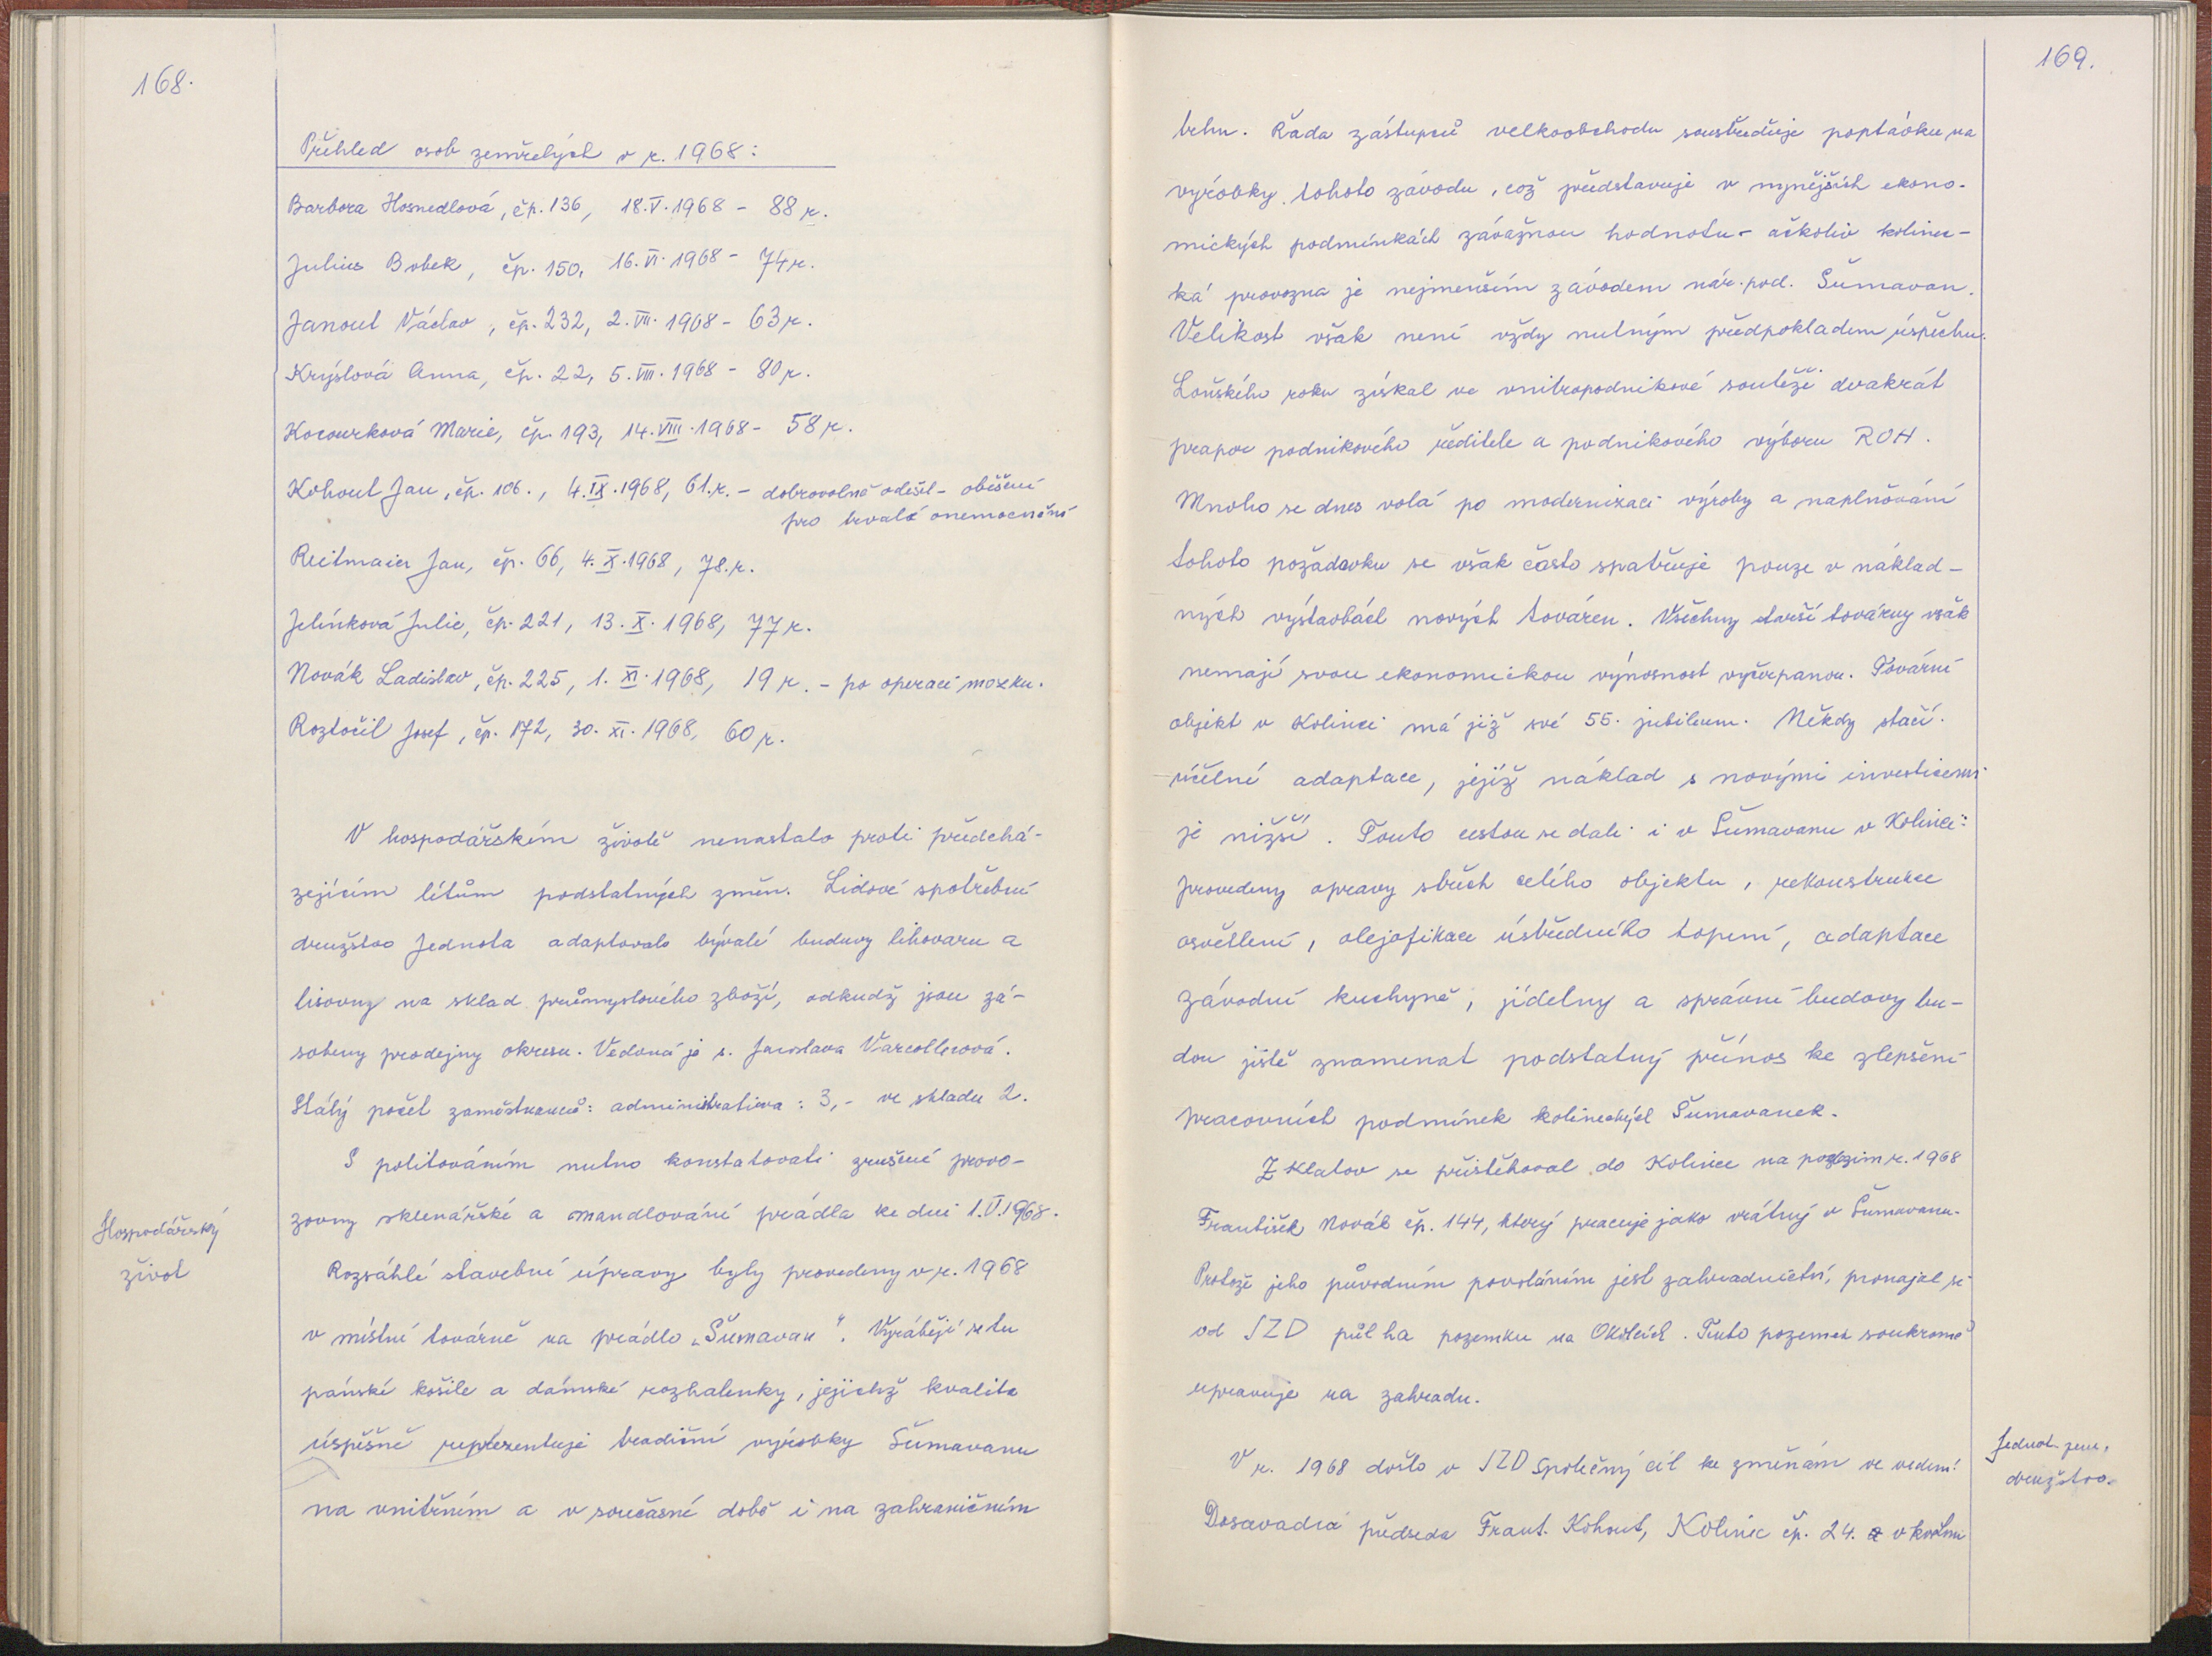 168.
Přehled osob zemřelých v r. 1968:
Barbora Hosnedlová, čp. 136, 18.V.1968 - 88 r.
Julius Bobek, čp. 150, 16.VI.1968 - 74 r.
Janout Václav, čp. 232, 2.VII.1968 - 63 r.
Krýslová Anna, čp. 22, 5.VIII.1968 - 80 r.
Kocourková Marie, čp. 193, 14.VIII.1968 - 58 r.
Kohout Jan, čp. 106., 4.IX.1968, 61.r. - dobrovolně odešel - oběšení
pro trvalé onemocnění
Reitmaier Jan, čp. 66, 4.X.1968, 78.r.
Jelínková Julie, čp. 221, 13.X.1968, 77 r.
Novák Ladislav, čp. 225, 1.XI.1968, 19 r. - po operaci mozku.
Roztočil Josef, čp. 172, 30.XI.1968, 60 r.
V hospodářském životě nenastalo proti předchá-
zejícím létům podstatných změn. Lidové spotřební
družstvo Jednota adaptovalo bývalé budovy lihovaru a
lisovny na sklad průmyslového zboží, odkudž jsou zá-
sobeny prodejny okresu. Vedoucí je s. Jaroslava
Stálý počet zaměstnanců: administrativa: 3,- ve skladu 2.
S politováním nutno konstatovati zrušení provo-
zovny sklenářské a mandlování prádla ke dni 1.V.1968.
Hospodářský
život
Rozsáhlé stavební úpravy byly provedeny v r. 1968
v místní továrně na prádlo „Šumavan“. Vyrábějí se tu
pánské košile a dámské rozhalenky, jejichž kvalita
úspěšně reprezentuje tradiční výrobky Šumavanu
na vnitřním a v současné době i na zahraničním
169.
trhu. Řada zástupců velkoobchodu soustřeďuje poptávku na
výrobky tohoto závodu, což představuje v nynějších ekono-
mických podmínkách závažnou hodnotu - ačkoliv kolinec-
ká provozna je nejmenším závodem nár. pod. Šumavan.
Velikost však není vždy nutným předpokladem úspěchu.
Loňského roku získal ve vnitropodnikové soutěži dvakrát
prapor podnikového ředitele a podnikového výboru ROH.
Mnoho se dnes volá po modernizaci výroby a naplňování
tohoto požadavku se však často spatřuje pouze v náklad-
ných výstavbách nových továren. Všechny starší továrny však
nemají svou ekonomickou výnosnost vyčerpanou. Tovární
objekt v Kolinci má již své 55. jubileum. Někdy stačí
účelné adaptace, jejíž náklad s novými investicemi
je nižší. Touto cestou se dali i v Šumavanu v Kolinci:
provedeny opravy střech celého objektu, rekonstrukce
osvětlení, olejofikace ústředního topení, adaptace
závodní kuchyně, jídelny a správní budovy bu-
dou jistě znamenat podstatný přínos ke zlepšení
pracovních podmínek kolineckých Šumavanek.
Z Klatov se přistěhoval do Kolince na podzim r. 1968
František Novák čp. 144, který pracuje jako vrátný v Šumavanu.
Protože jeho původním povoláním jest zahradnictví, pronajal si
od JZD půl ha pozemku na Okolích. Tento pozemek soukromě
upravuje na zahradu.
Jednot. zem.
družstvo.
V r. 1968 došlo v JZD Společný cíl ke změnám ve vedení:
Dosavadní předseda Frant. Kohout, Kolinec čp. 24. v květnu